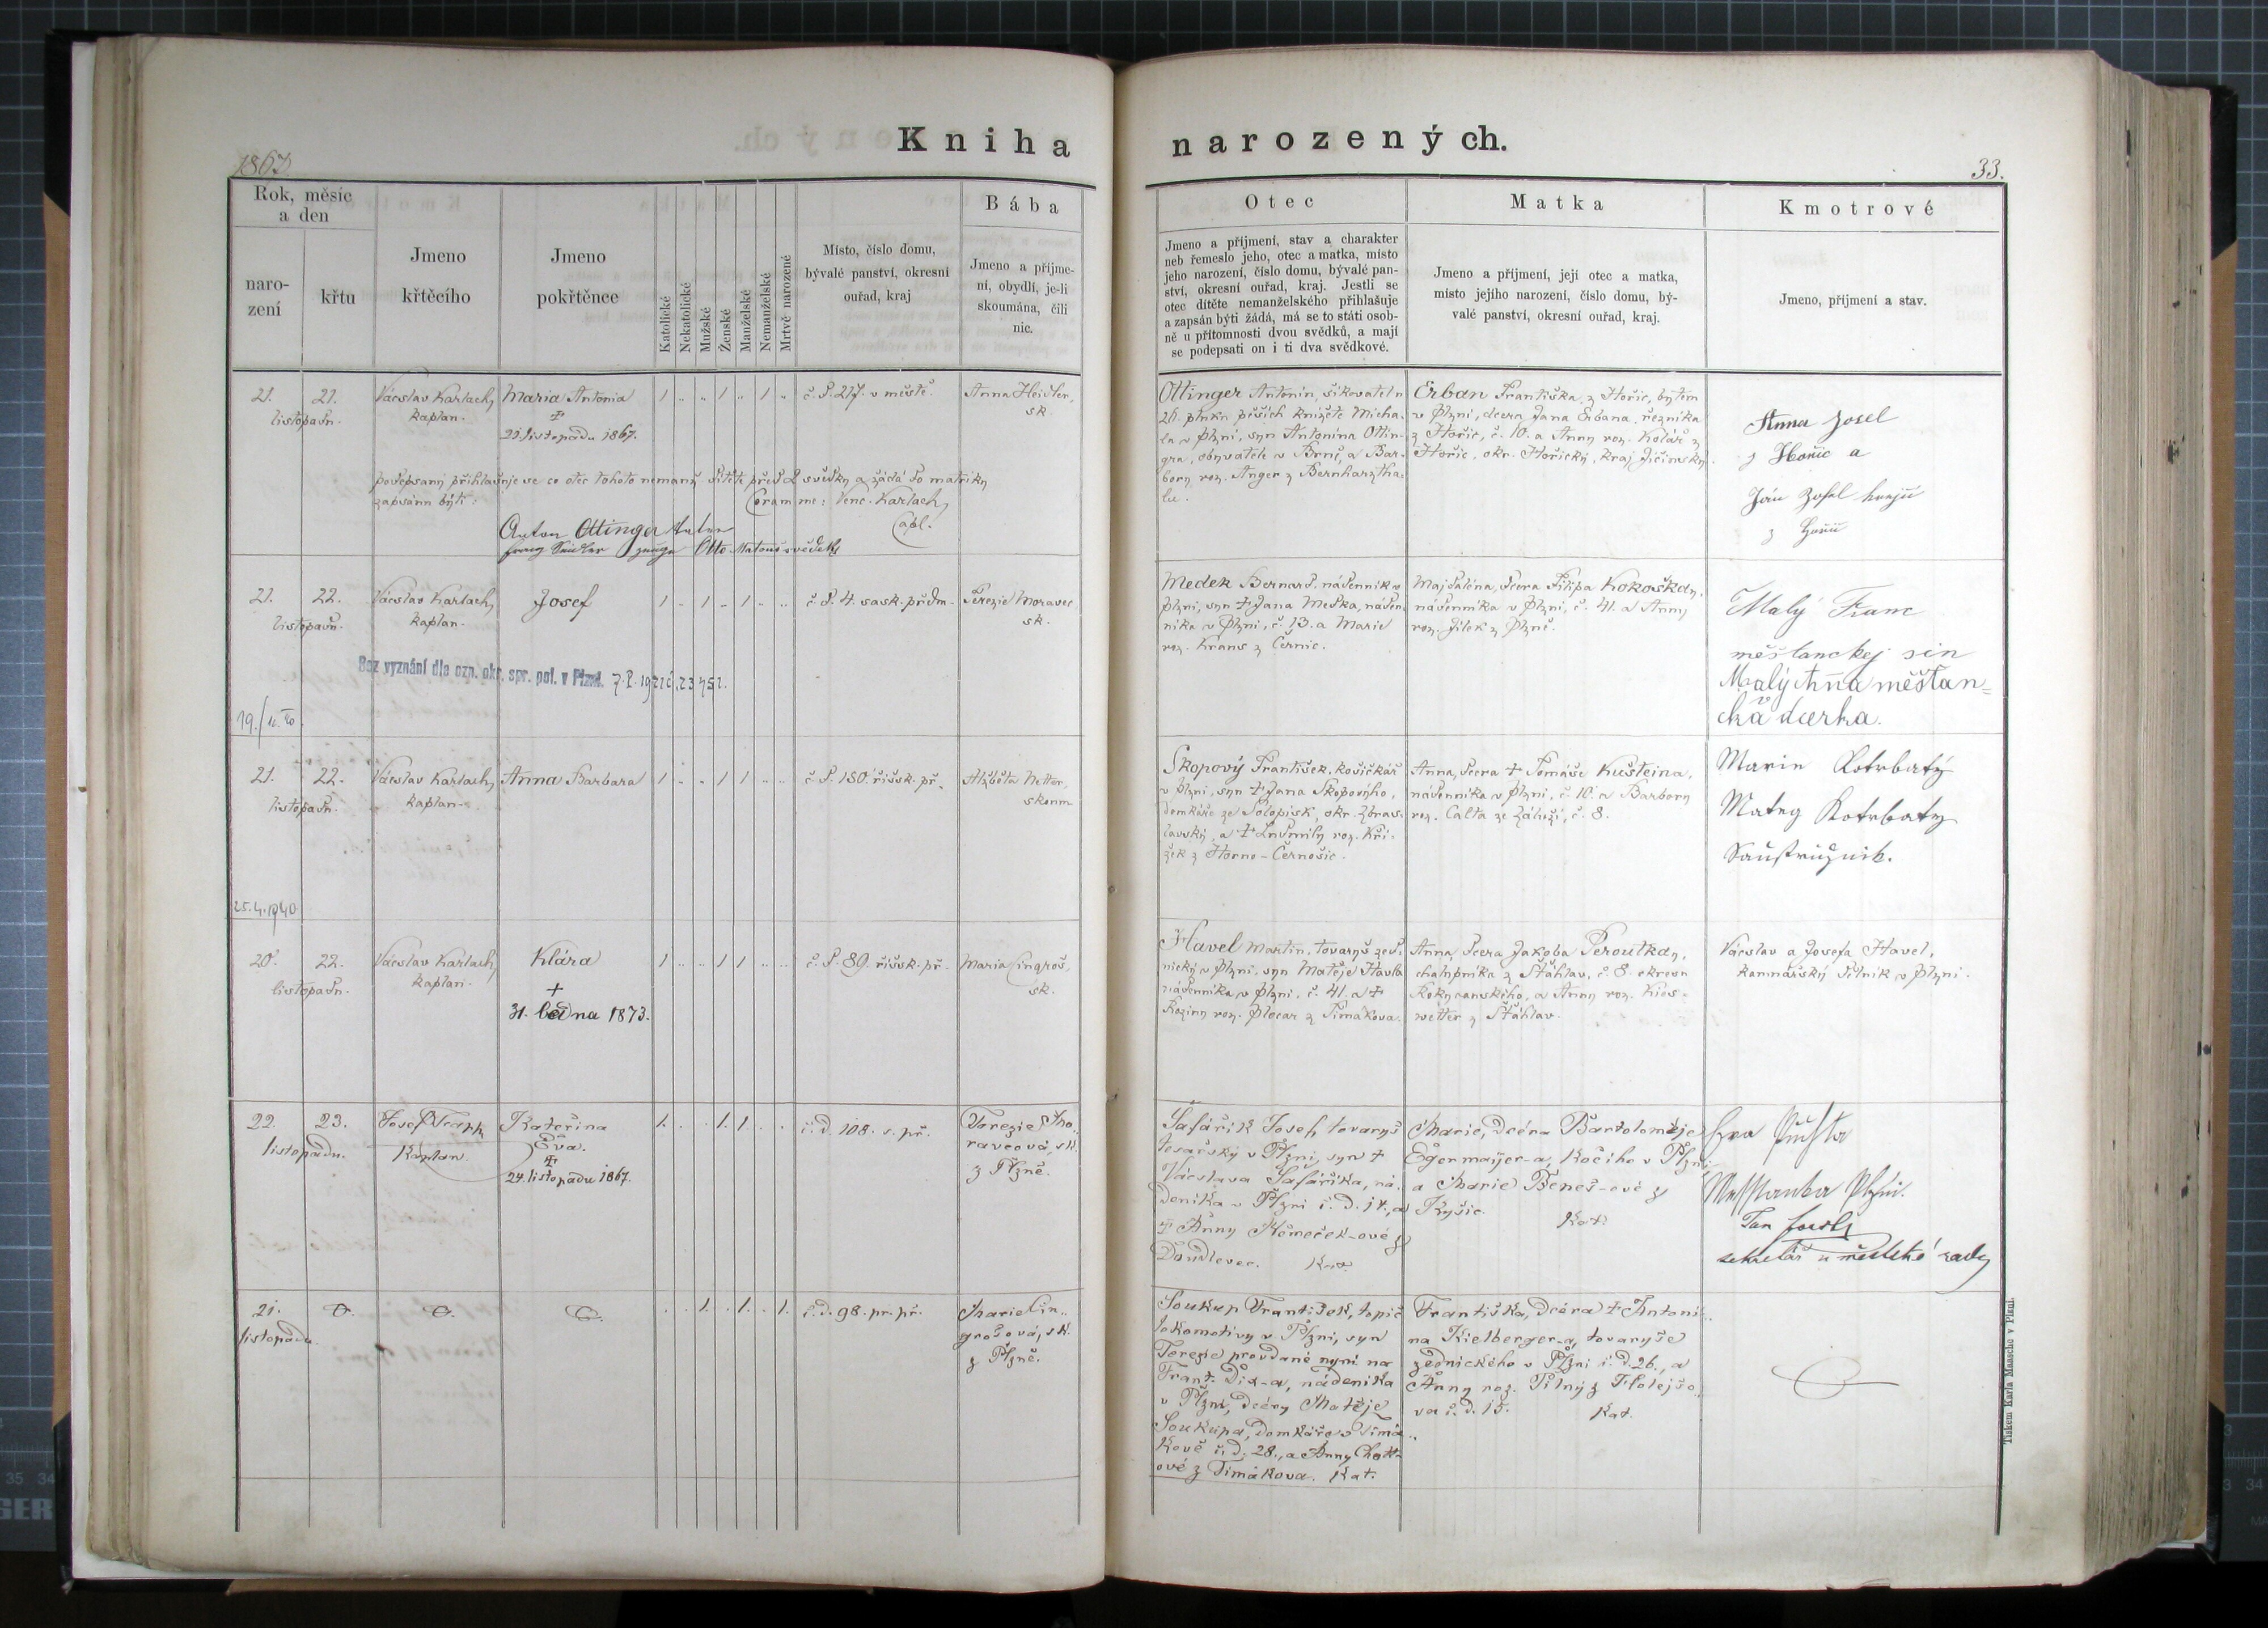 Kniha narozených.
1867
33.
Rok, měsíc
a den
naro-
zení
křtu
Jmeno
křtěcího
Jmeno
pokřtěnce
Katolické
Nekatolické
Mužské
Ženské
Manželské
Nemanželské
Mrtvě narozené
Místo, číslo domu,
bývalé panství, okresní
ouřad, kraj
Bába
Jmeno a příjme-
ní, obydlí, je-li
skoumána, čili
nic.
Otec
Jmeno a příjmení, stav a charakter
neb řemeslo jeho, otec a matka, místo
jeho narození, číslo domu, bývalé pan-
ství, okresní ouřad, kraj. Jestli se
otec dítěte nemanželského přihlašuje
a zapsán býti žádá, má se to státi osob-
ně u přítomnosti dvou svědků, a mají
se podepsati on i ti dva svědkové.
Matka
Jmeno a příjmení, její otec a matka,
místo jejího narození, číslo domu, bý-
valé panství, okresní ouřad, kraj.
Kmotrové
Jmeno, příjmení a stav.
21. 21.
listopadu.
Václav Karlach,
kaplan.
Maria Antonia
†
21. listopadu 1867.
1 .. .. 1 .. 1 ..
č. d. 217. v městě.
Anna Heidler,
sk.
podepsaný přihlašuje se co otec tohoto nemanž. dítěte před 2 svědky a žádá do matriky
zapsánu býti:
Coram me: Venc. Karlach,
Capl.
Anton Ottinger Vater
Franz Seidler zeuge Otto Matouš svědek
Ottinger Antonín, šikovatel u
26. pluku pěších knížete Micha-
la v Plzni, syn Antonína Ottin-
gra, obyvatele v Brně, a Bar-
bory roz. Anger z Bernharztha-
lu.
Erban Františka z Hořic, bytem
v Plzni, dcera Jana Erbana, řezníka
z Hořic, č. 10. a Anny roz. Kolář z
Hořic, okr. Hořický, kraj Jičínský.
Anna Josel
z Hořic a
21. 22.
listopadu.
Václav Karlach,
kaplan.
Josef
1 .. 1 .. 1 .. ..
č. d. 4. sask. předm.
Terezie Moravec,
sk.
Bez vyznání dle ozn. okr. spr. pol. v Plzni. 7.I.1921 č. 23751.
Medek Bernard, nádenník v
Plzni, syn † Jana Medka, náden-
níka v Plzni, č. 13. a Marie
roz. Kraus z Černic.
Majdaléna, dcera Filipa Kokoška,
nádenníka v Plzni, č. 41. a Anny
roz. Jílek z Plzně.
Malý Franc
měšťanckej sin
Malý Anna měšťan=
cká dcerka.
21. 22.
listopadu.
25.4.1940
Václav Karlach,
kaplan.
Anna Barbara
1 .. .. 1 1 .. ..
č. d. 180. říšsk. př.
Alžběta Netter,
skoum.
Skopový František, košíkář
v Plzni, syn † Jana Skopového,
domkáře ze Solopisk, okr. Zbras-
lavský, a † Ludmily roz. Kří-
žek z Horno-Černošic.
Anna, dcera † Tomáše Kušteina,
nádenníka v Plzni, č. 10. a Barbory
roz. Calta ze Záluží, č. 8.
Marie Kotrbatý
Matěj Kotrbatý
20. 22.
listopadu.
Václav Karlach,
kaplan.
Klára
†
31. ledna 1873.
1 .. .. 1 1 .. ..
č. d. 89. říšsk. př.
Maria Cingroš,
sk.
Havel Martin, tovaryš zed-
nický v Plzni, syn Matěje Havla
nádenníka v Plzni, č. 41. a †
Roziny roz. Plecar z Timákova.
Anna, dcera Jakoba Peroutka,
chalupníka z Šťáhlav, č. 8. okresu
Rokycanského, a Anny roz. Kies-
wetter z Šťáhlav.
Václav a Josefa Havel,
kamnářský dělník v Plzni.
22. 23.
listopadu.
Josef
Kaplan.
Kateřina
Eva.
†
24. listopadu 1867.
1. . . 1. 1. . .
č. d. 108. s. př.
Terezie Mo-
ravcová, sk.
z Plzně.
Šafařík Josef, tovaryš
tesařský v Plzni, syn †
Václava Šafaříka, ná-
deníka v Plzni č. d. 14., a
† Anny Němeček-ové z
Doudlevec. Kat.
Marie, dcéra Bartoloměje
Egermaijer-a, kočího v Plzni,
a Marie Beneš-ové z
Kyšic. Kat.
Eva
Jan
sekretář u městské rady
21.
listopadu.
. . 1. . 1. . 1.
č. d. 98. pr. př.
Marie Cin-
grošová, sk.
z Plzně.
Soukup František, topič
lokomotivy v Plzni, syn
Terezie provdané nyní na
Frant. Dix-a, nádeníka
v Plzni, dcéry Matěje
Soukupa, domkáře v Timá-
kově č. d. 28., a Anny Chott-
ové z Timákova. Kat.
Františka, dcéra † Antoní-
na Kielberger-a, tovaryše
zednického v Plzni č. d. 26., a
Anny roz. Pilný z Holejšo-
va č. d. 15. Kat.
Tiskem Karla Maascha v Plzni.